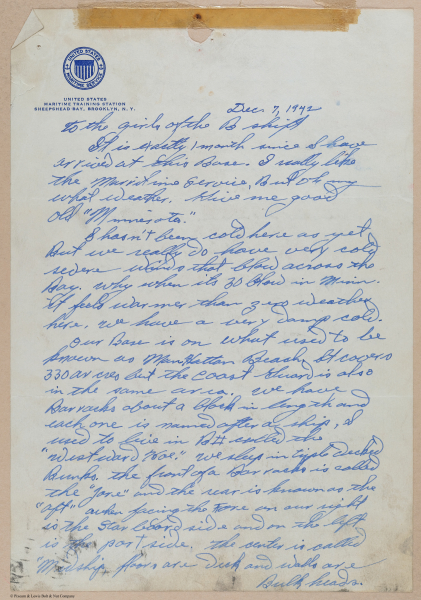 UNITED STATES
MARITIME SERVICE
UNITED STATES
MARITIME TRAINING STATION
SHEEPSHEAD BAY, BROOKLYN, N. Y.
Dec. 7, 1942
To the girls of the B shift
It is exactly 1 month since I have
arrived at this Base. I really like
the Maritime Service, But oh my
what weather. Give me good
old "Minnesota."
I hasn't been cold here as yet
But we really do have very cold
severe winds that blow across the
Bay. Why when its 30 Blow in Minn.
It feels warmer than zero weather
here. We have a very damp cold.
Our Base is on what used to be
known as Manhattan Beach. It covers
330 acres but the Coast Guard is also
in the same area. We have
Barracks about a block in length and
each one is named after a ship. I
used to live in B11 called the
"Westward Hoe." We sleep in triple decked
Bunks. The front of a Barracks is called
the "Fore" and the rear is known as the
"aft." when facing the Fore on our right
is the Starboard side and on the left
is the port side. The center is called
Midship, floors are Deck and walls are
Bulkheads.
© Pioneer & Lewis Bolt & Nut Company